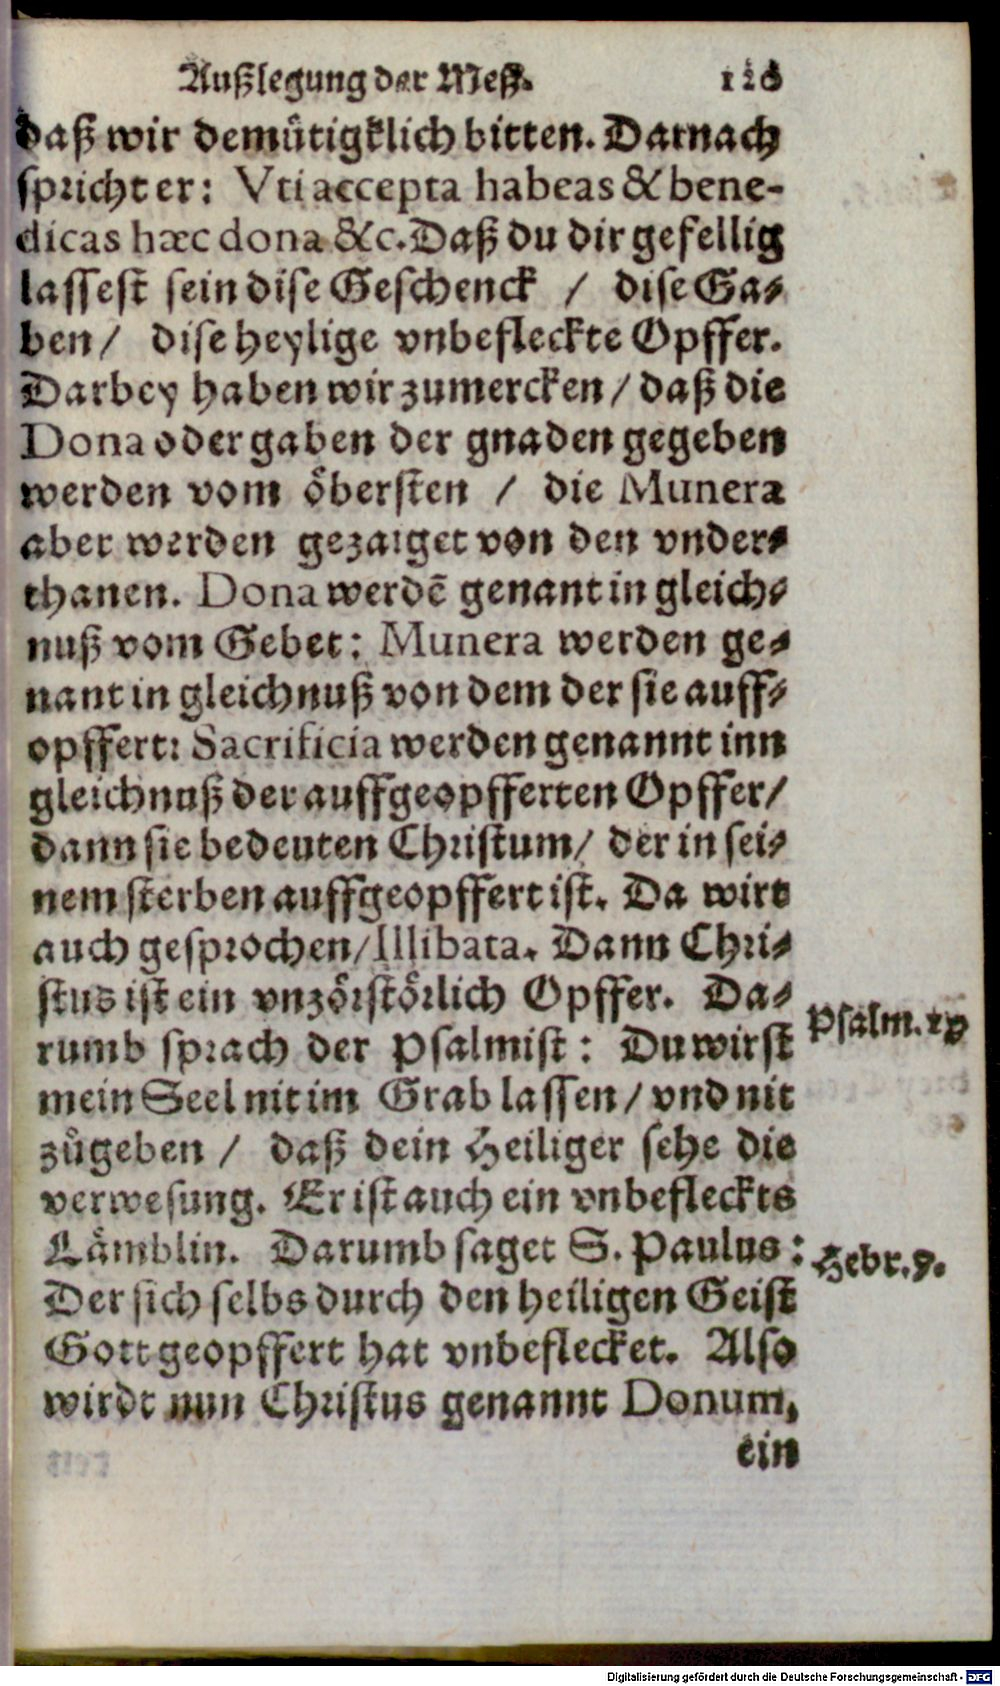 Außlegung der Meß. 126
daß wir demütigklich bitten. Darnach
spricht er: Vti accepta habeas & bene-
dicas hæc dona &c. Daß du dir gefellig
lassest sein dise Geschenck / dise Ga-
ben / dise heylige vnbefleckte Opffer.
Darbey haben wir zumercken / daß die
Dona oder gaben der gnaden gegeben
werden vom öbersten / die Munera
aber werden gezaiget von den vnder-
thanen. Dona werdē genant in gleich-
nuß vom Gebet: Munera werden ge-
nant in gleichnuß von dem der sie auff-
opffert: Sacrificia werden genannt inn
gleichnuß der auffgeopfferten Opffer/
dann sie bedeuten Christum/ der in sei-
nem sterben auffgeopffert ist. Da wirt
auch gesprochen/Illibata. Dann Chri-
stus ist ein vnzörstörlich Opffer. Da-
rumb sprach der Psalmist: Du wirst
Psalm. 15
mein Seel nit im Grab lassen / vnd nit
zůgeben / daß dein Heiliger sehe die
verwesung. Er ist auch ein vnbefleckts
Lämblin. Darumb saget S. Paulus:
Hebr. 9.
Der sich selbs durch den heiligen Geist
Gott geopffert hat vnbeflecket. Also
wirdt nun Christus genannt Donum,
ein
Digitalisierung gefördert durch die Deutsche Forschungsgemeinschaft - DFG